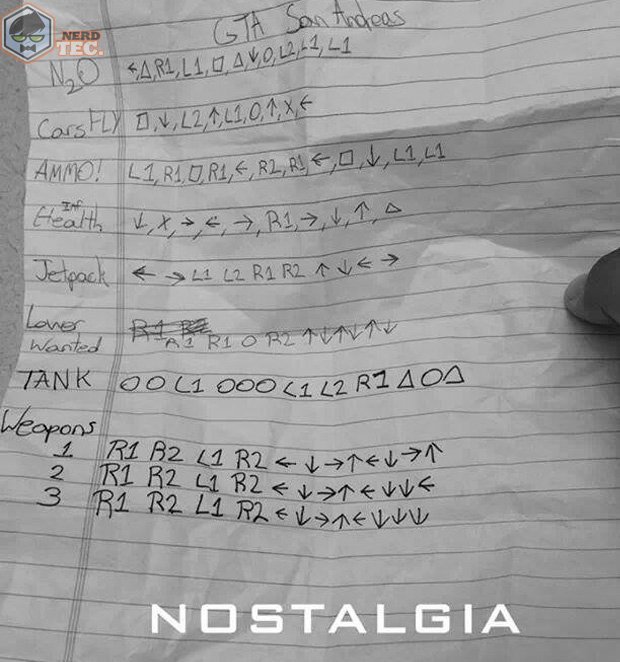 NERD
TEC.
GTA San Andreas
N2O ←,△,R1,L1,□,△,↓,O,L2,L1,L1
Cars FLY □,↓,L2,↑,L1,O,↑,X,←
AMMO! L1,R1,□,R1,←,R2,R1,←,□,↓,L1,L1
Inf
Health ↓,X,→,←,→,R1,→,↓,↑,△
Jetpack ← → L1 L2 R1 R2 ↑ ↓ ← →
Lower Wanted R1 R1 O R2 ↑↓↑↓↑↓
TANK O O L1 O O O L1 L2 R1 △ O △
Weapons
1 R1 R2 L1 R2 ← ↓ → ↑ ← ↓ → ↑
2 R1 R2 L1 R2 ← ↓ → ↑ ← ↓ ↓ ←
3 R1 R2 L1 R2 ← ↓ → ↑ ← ↓ ↓ ↓
NOSTALGIA